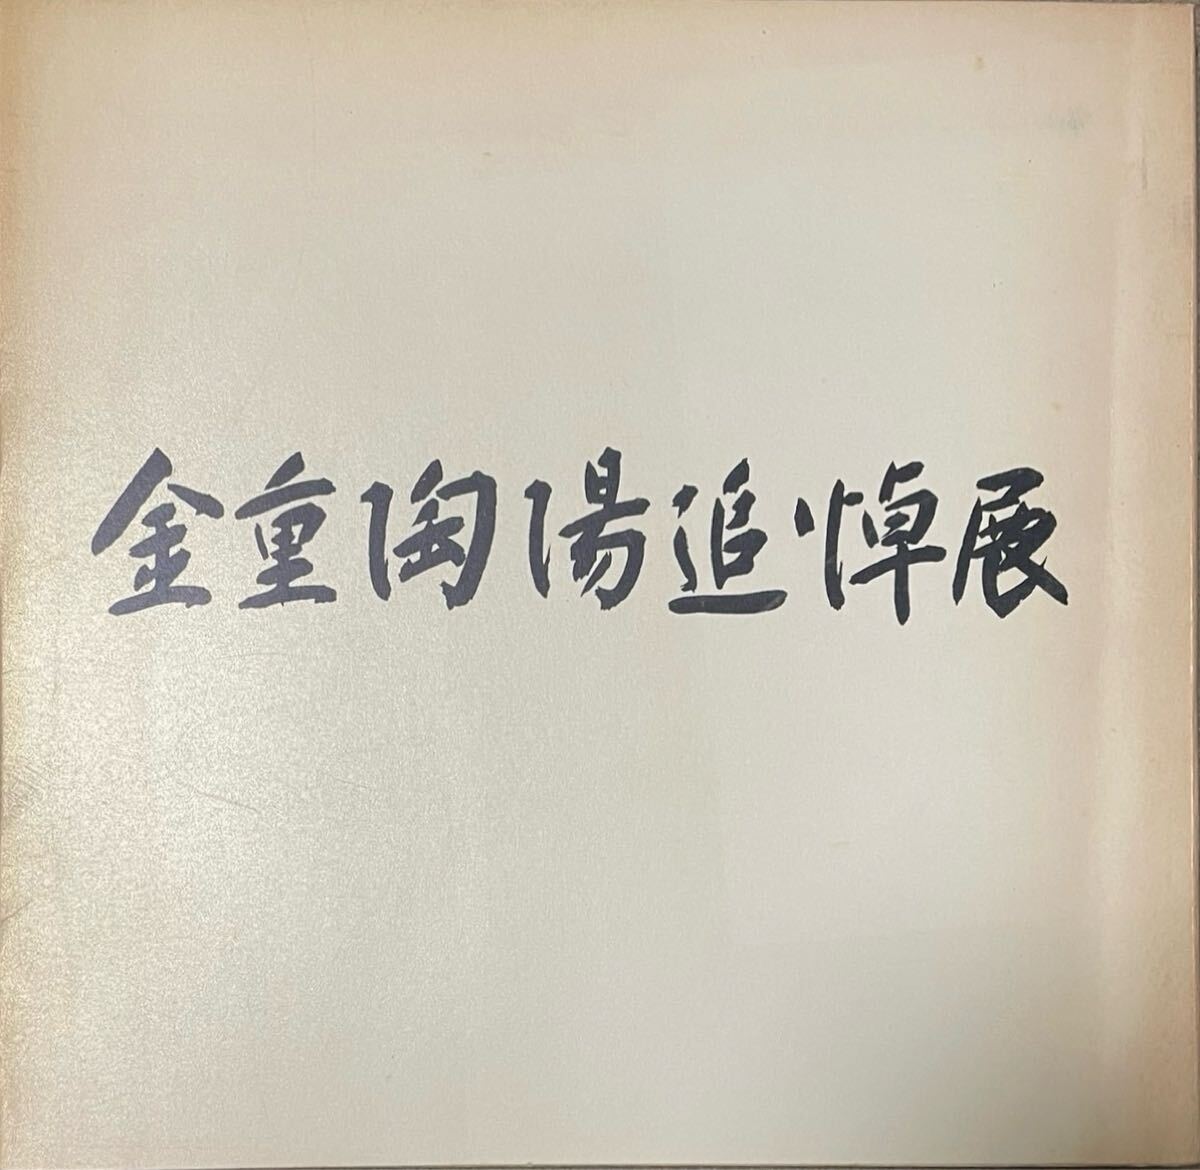 金重陶陽追悼展